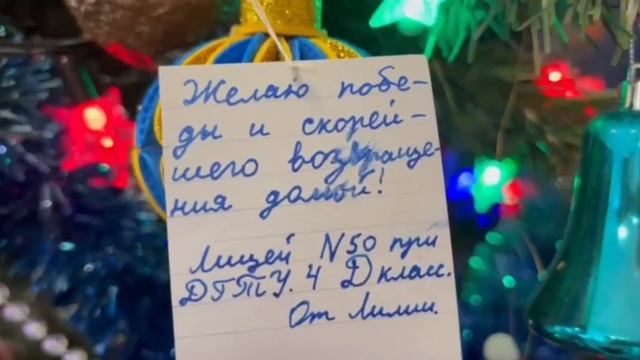 Желаю побе-
ды и скорей-
шего возвраще-
ния домой!
Лицей N50 при
ДГТУ. 4 Д класс.
От Лилии.